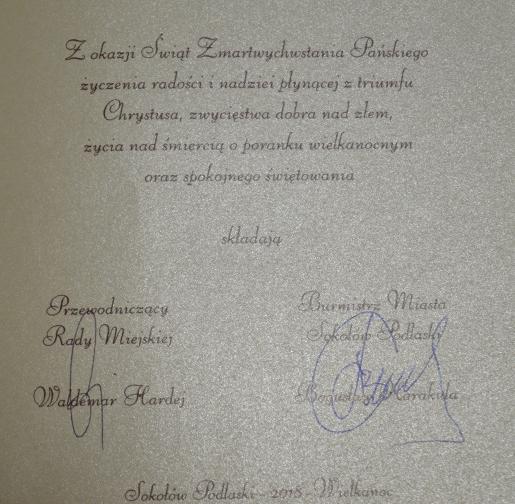 Z okazji Świąt Zmartwychwstania Pańskiego
życzenia radości i nadziei płynącej z triumfu
Chrystusa, zwycięstwa dobra nad złem,
życia nad śmiercią o poranku wielkanocnym
oraz spokojnego świętowania
składają
Przewodniczący
Rady Miejskiej
Waldemar Hardej
Burmistrz Miasta
Sokołów Podlaski
Bogusław Karakula
Sokołów Podlaski - 2015 - Wielkanoc